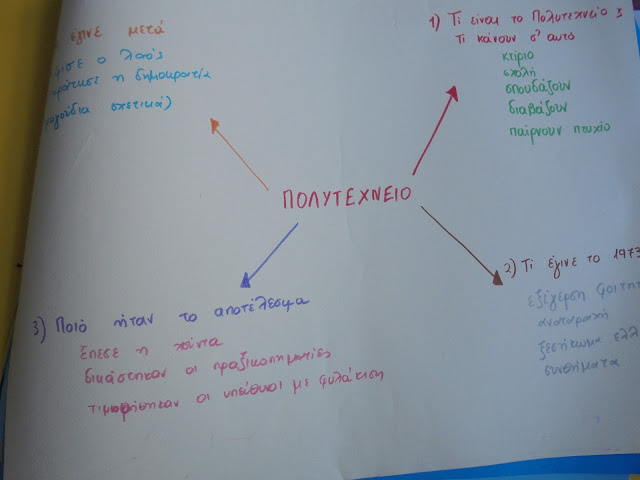 έγινε μετά
ο λαός
η δημοκρατία
σχετικά)
1) Τι είναι το Πολυτεχνείο ;
Τι κάνουν σ' αυτό
κτίριο
σχολή
σπουδάζουν
διαβάζουν
παίρνουν πτυχίο
ΠΟΛΥΤΕΧΝΕΙΟ
2) Τι έγινε το 1973
εξέγερση
αναταραχή
ξεσήκωμα
συνθήματα
3) Ποιό ήταν το αποτέλεσμα
Έπεσε η χούντα
δικάστηκαν οι πραξικοπηματίες
τιμωρήθηκαν οι υπεύθυνοι με φυλάκιση